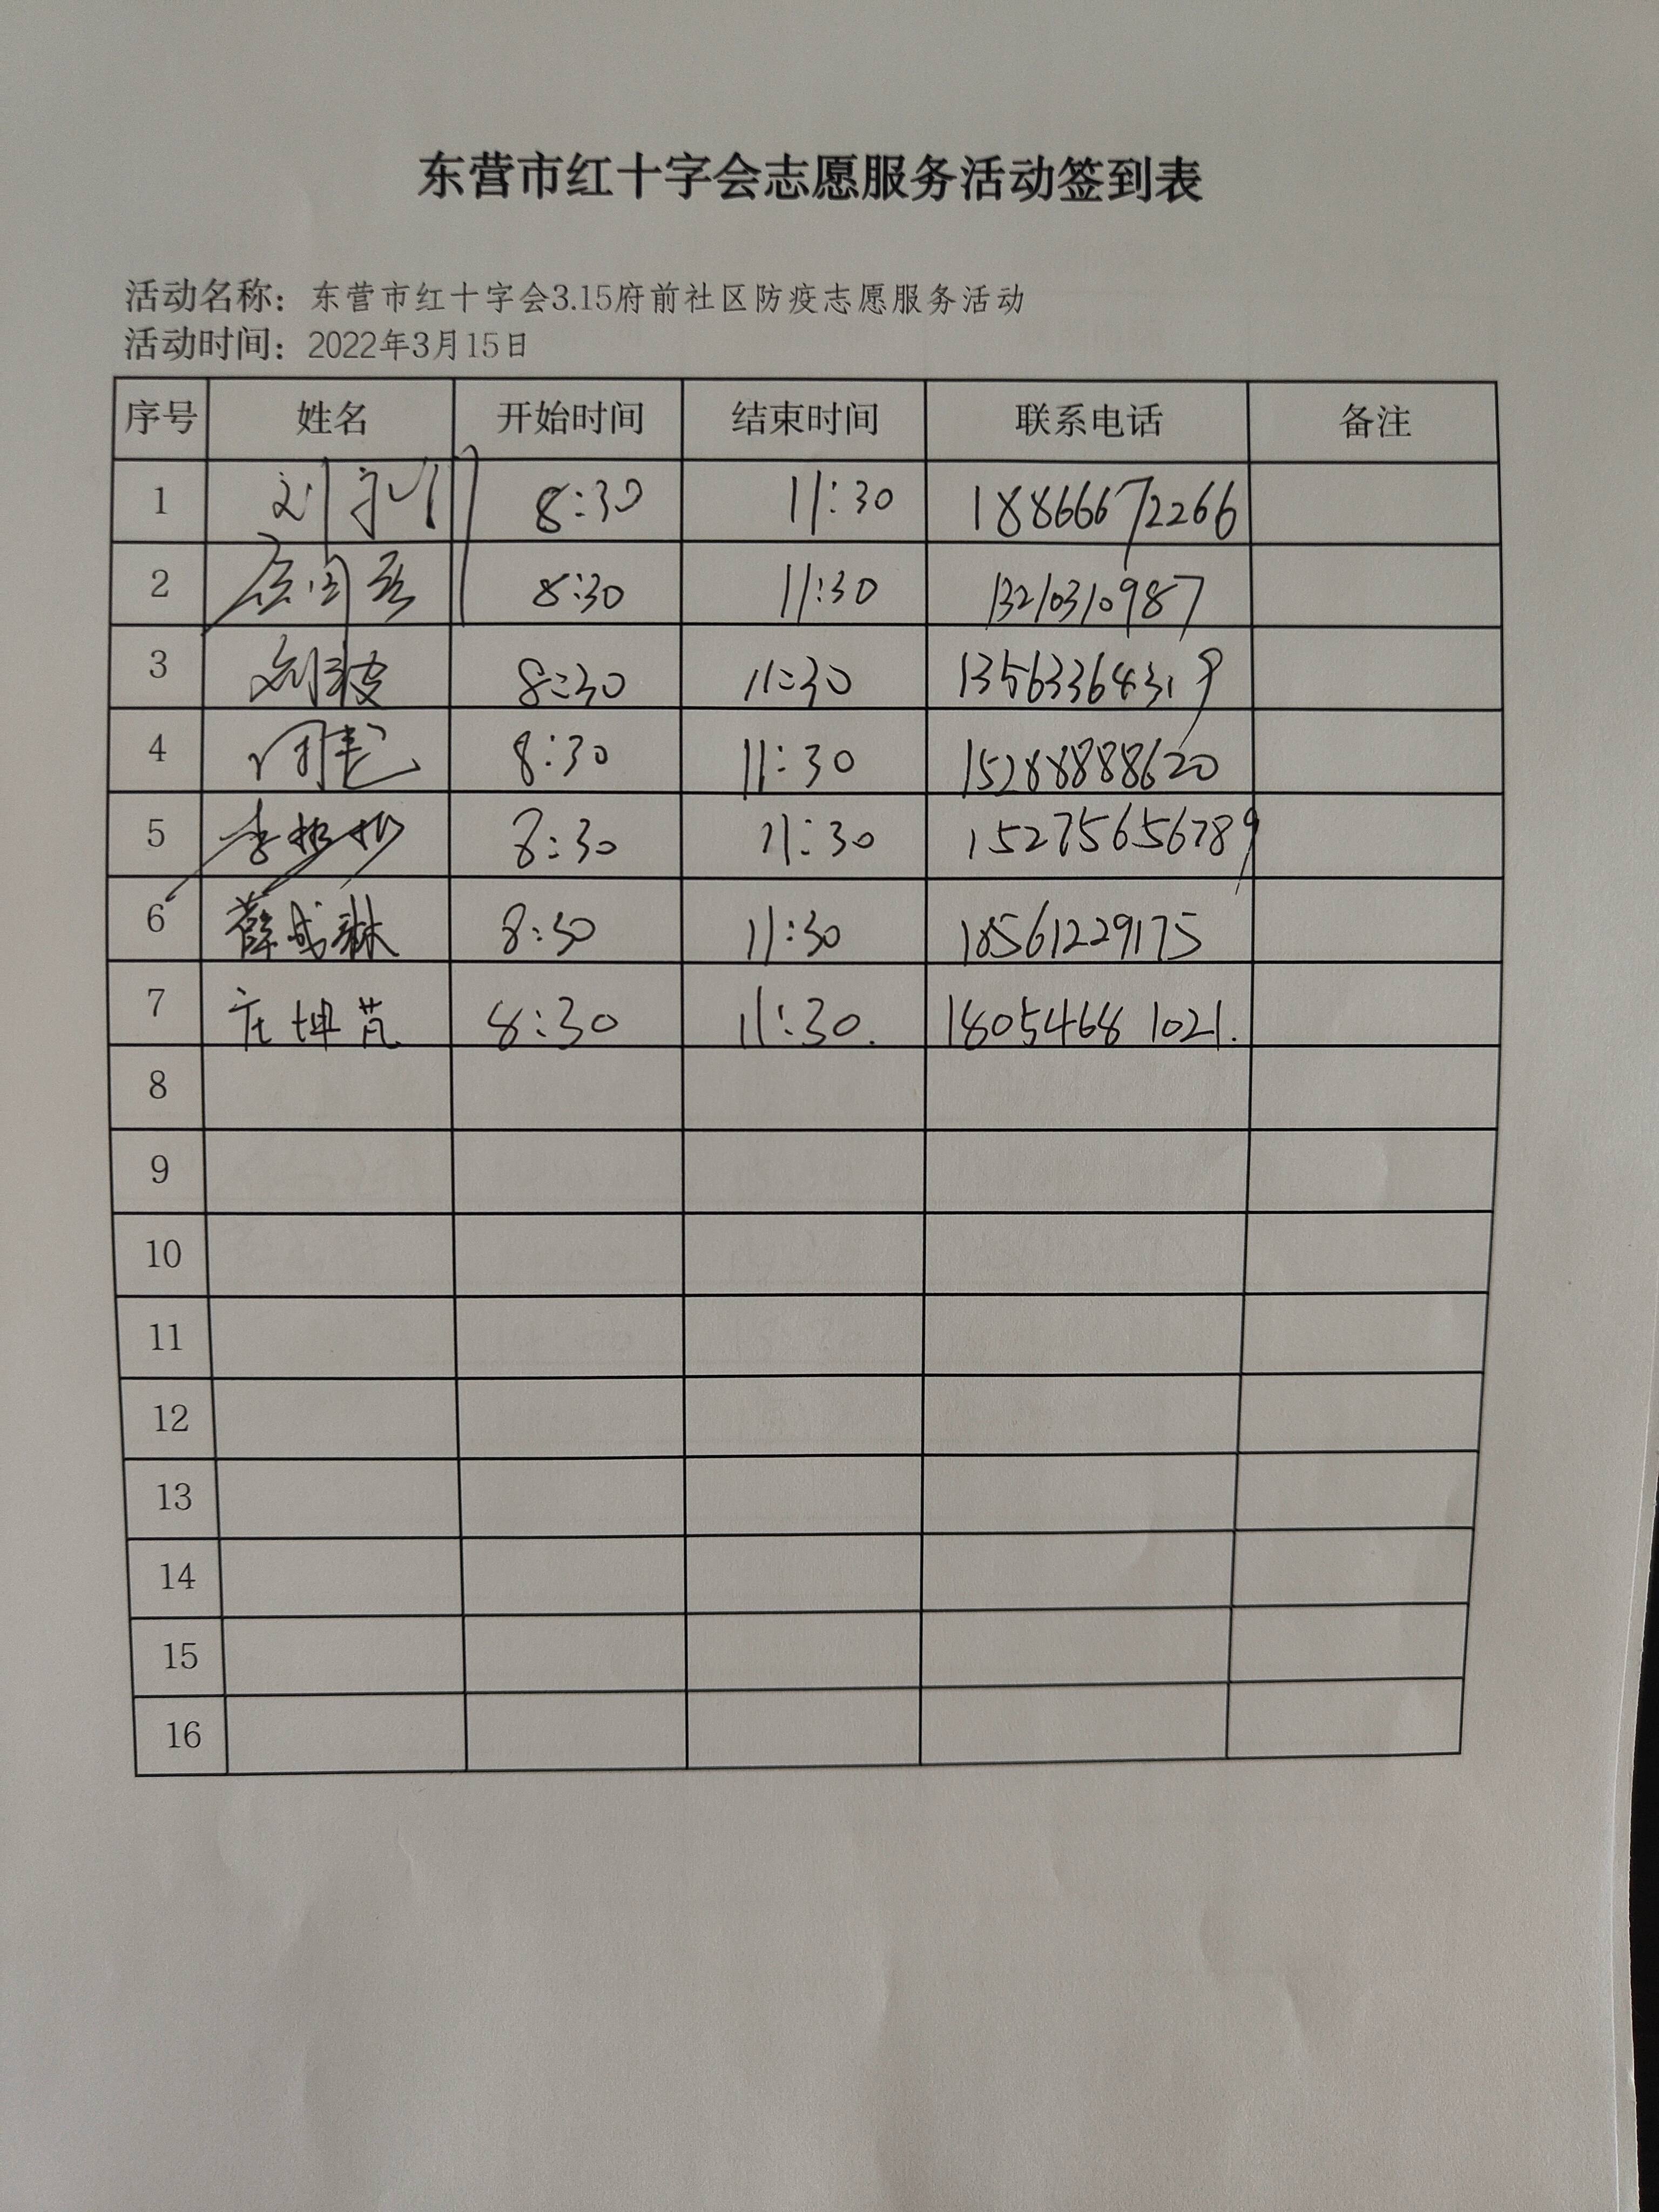 东营市红十字会志愿服务活动签到表
活动名称：东营市红十字会3.15府前社区防疫志愿服务活动
活动时间：2022年3月15日
序号 姓名 开始时间 结束时间 联系电话 备注
1 刘 8:30 11:30 18866672266
2 8:30 11:30 13210310987
3 刘 8:30 11:30 13563364319
4 8:30 11:30 15288888620
5 李 8:30 11:30 15275656789
6 薛成琳 8:30 11:30 18561229175
7 庄坤芃 8:30 11:30. 18054681021.
8
9
10
11
12
13
14
15
16